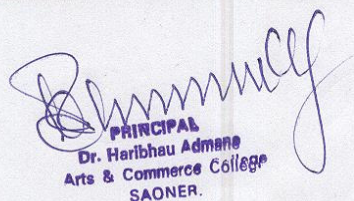 PRINCIPAL
Dr. Haribhau Admane
Arts & Commerce College
SAONER.